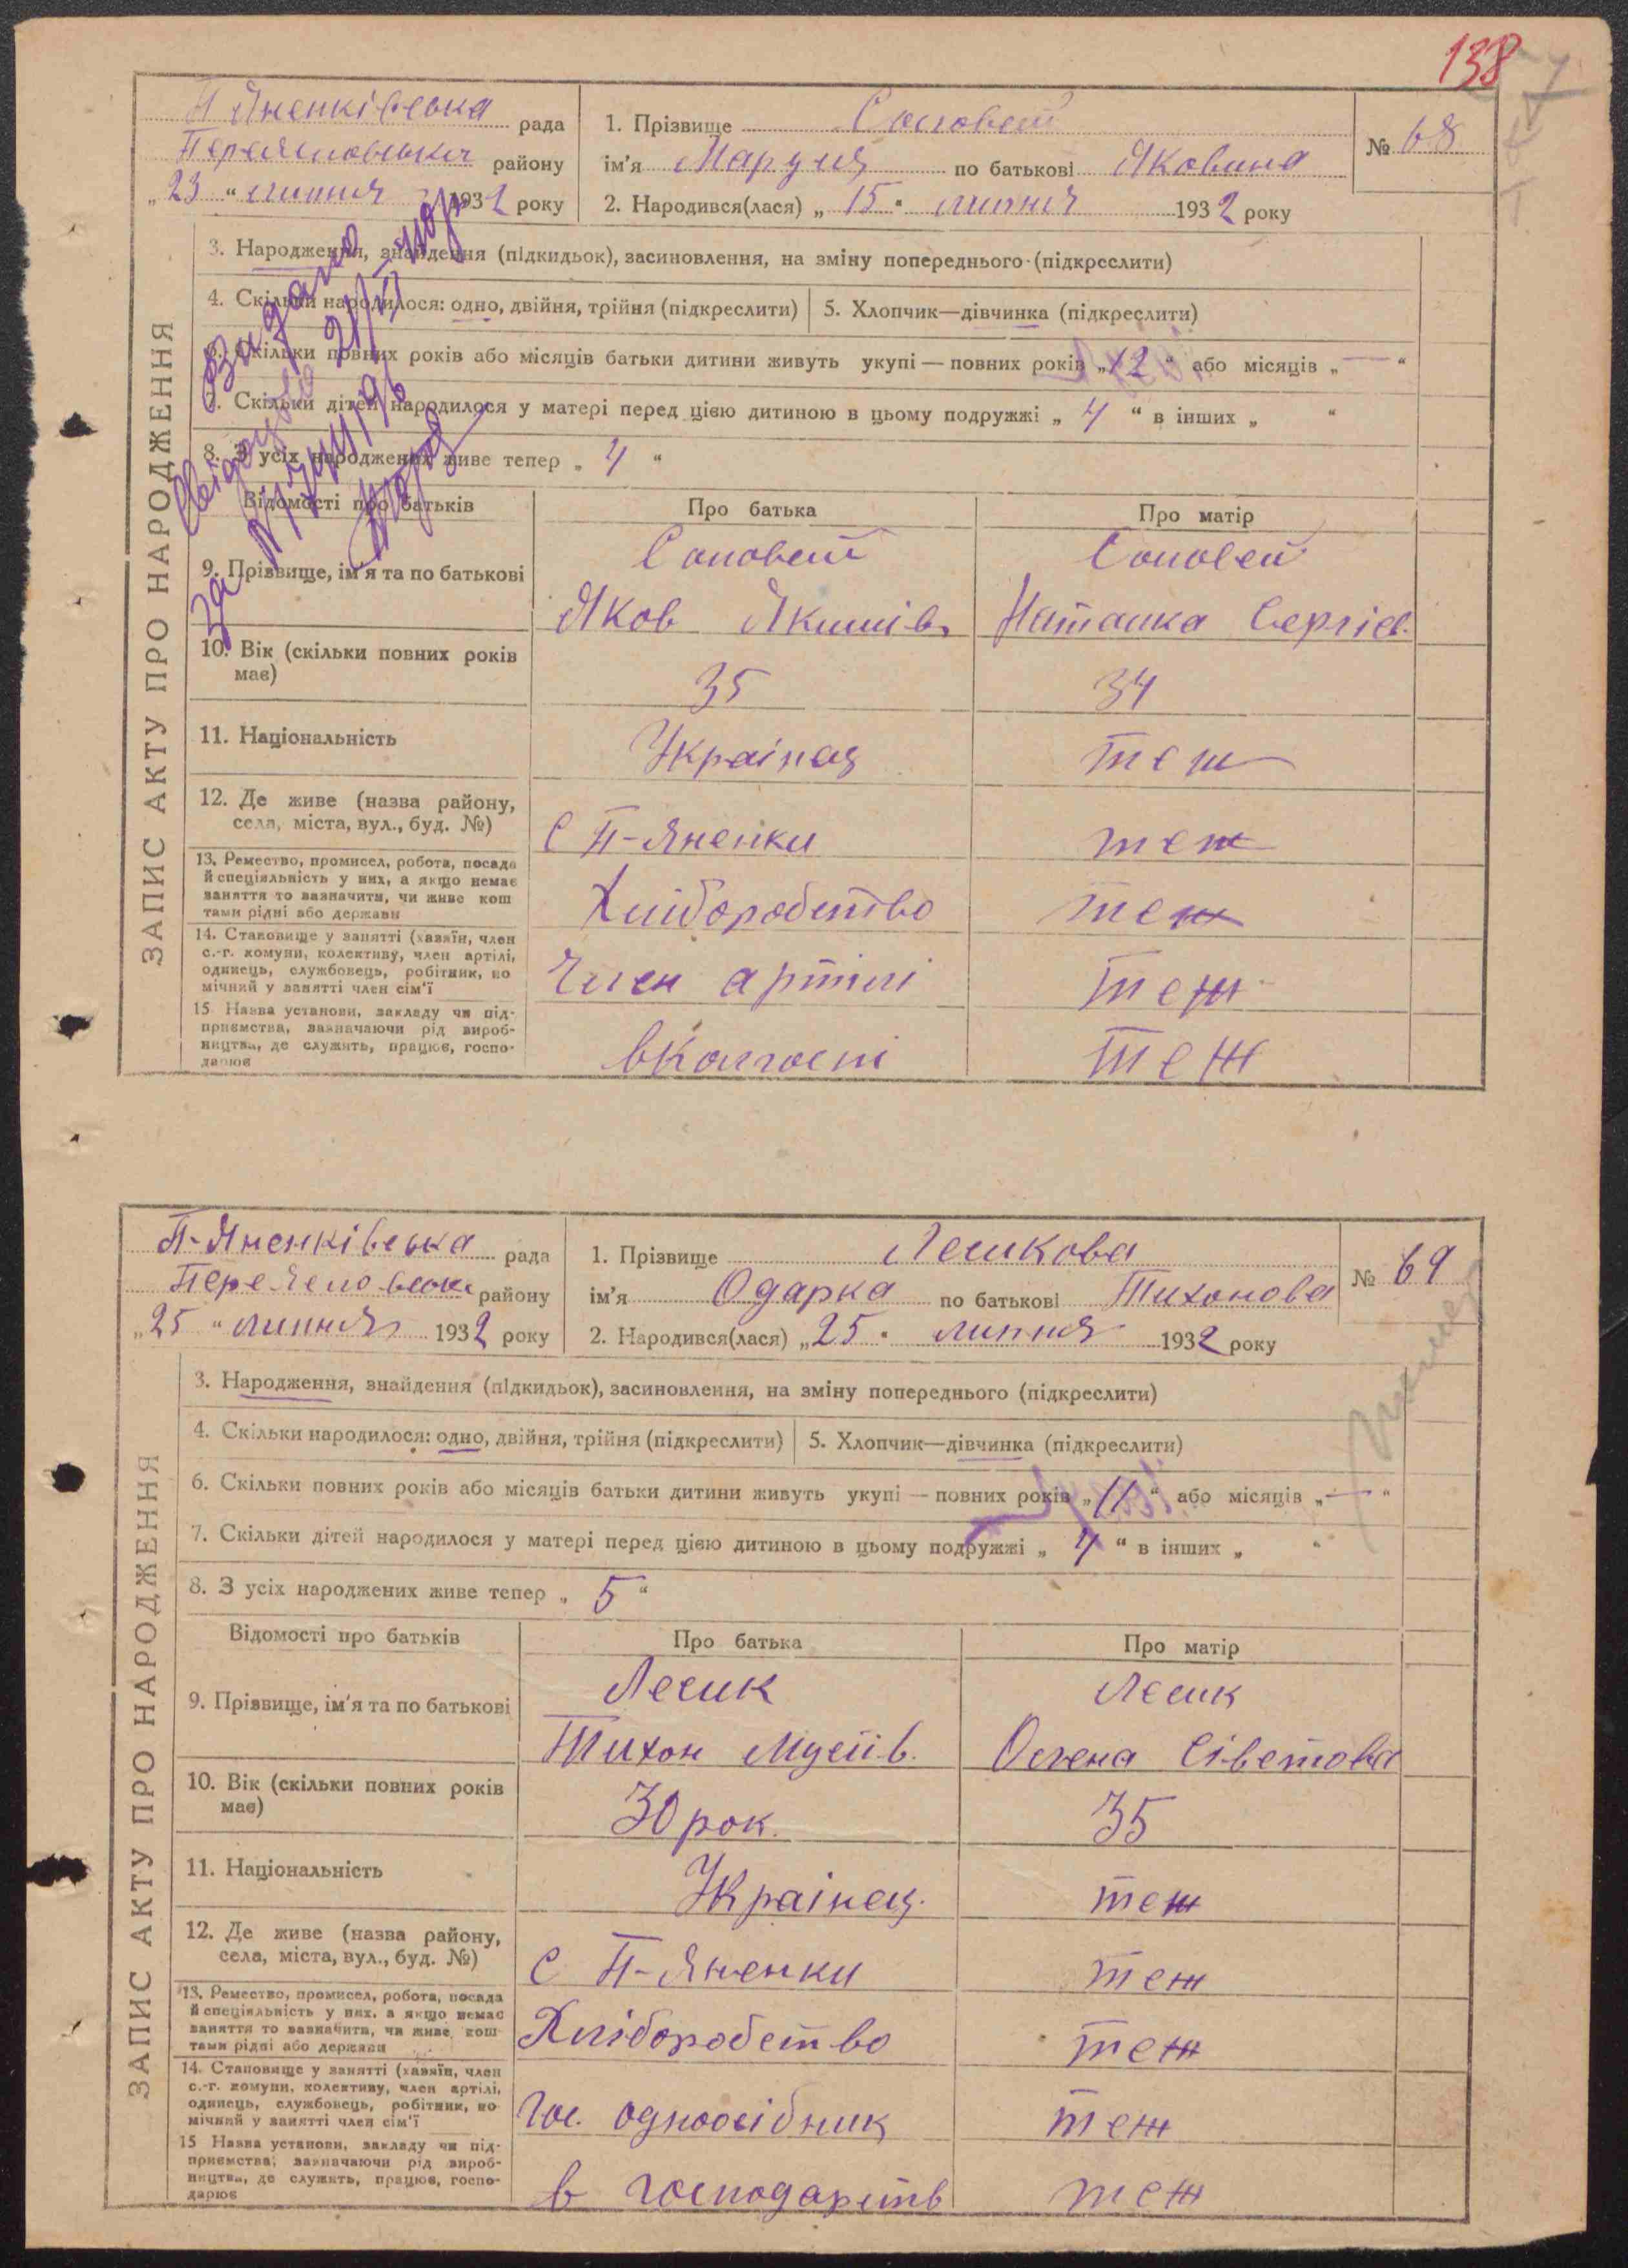 138
П Яненківська рада
Переяславська району
„23“ липня 1932 року
1. Прізвище Соловей
ім'я Маруся по батькові Яковина
№ 68
2. Народився(лася) „15“ липня 1932 року
ЗАПИС АКТУ ПРО НАРОДЖЕННЯ
3. Народження, знайдення (підкидьок), засиновлення, на зміну попереднього (підкреслити)
4. Скільки народилося: одно, двійня, трійня (підкреслити)
5. Хлопчик—дівчинка (підкреслити)
6. Скільки повних років або місяців батьки дитини живуть укупі — повних років „12“ або місяців „—“
7. Скільки дітей народилося у матері перед цією дитиною в цьому подружжі „4“ в інших „ “
8. З усіх народжених живе тепер „4“
Видано
свідоцтво
Відомості про батьків
Про батька
Про матір
9. Прізвище, ім'я та по батькові
Соловей
Яков Якимів.
Соловей
Наталка Сергієв.
10. Вік (скільки повних років має)
35
34
11. Національність
Украінец
теж
12. Де живе (назва району, села, міста, вул., буд. №)
с П-Яненки
теж
13. Ремество, промисел, робота, посада й спеціяльність у них, а якщо немає заняття то зазначити, чи живе коштами рідні або держави
Хліборобство
теж
14. Становище у занятті (хазяїн, член с.-г. комуни, колективу, член артілі, одинець, службовець, робітник, помічний у занятті член сім'ї
Член артілі
теж
15 Назва установи, закладу чи підприємства, зазначаючи рід виробництва, де служить, працює, господарює
вКолгоспі
теж
П-Яненківська рада
Переяславськ. району
„25“ липня 1932 року
1. Прізвище Лесикова
ім'я Одарка по батькові Тихонова
№ 69
2. Народився(лася) „25“ липня 1932 року
ЗАПИС АКТУ ПРО НАРОДЖЕННЯ
3. Народження, знайдення (підкидьок), засиновлення, на зміну попереднього (підкреслити)
4. Скільки народилося: одно, двійня, трійня (підкреслити)
5. Хлопчик—дівчинка (підкреслити)
6. Скільки повних років або місяців батьки дитини живуть укупі — повних років „11“ або місяців „—“
7. Скільки дітей народилося у матері перед цією дитиною в цьому подружжі „4“ в інших „ “
8. З усіх народжених живе тепер „5“
Відомості про батьків
Про батька
Про матір
9. Прізвище, ім'я та по батькові
Лесик
Тихон Мусіів.
Лесик
Олена Сіветова
10. Вік (скільки повних років має)
30 рок.
35
11. Національність
Украінец.
теж
12. Де живе (назва району, села, міста, вул., буд. №)
с П-Яненки
теж
13. Ремество, промисел, робота, посада й спеціяльність у них, а якщо немає заняття то зазначити, чи живе коштами рідні або держави
Хліборобство
теж
14. Становище у занятті (хазяїн, член с.-г. комуни, колективу, член артілі, одинець, службовець, робітник, помічний у занятті член сім'ї
Гос. одноосібник
теж
15 Назва установи, закладу чи підприємства, зазначаючи рід виробництва, де служить, працює, господарює
в господарств
теж